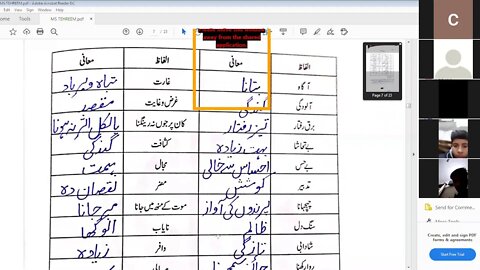 MS TEHREEM.pdf - Adobe Acrobat Reader DC
away from the shared
application.
7 / 23
الفاظ معانی الفاظ معانی
آگاہ بتانا غارت تباہ و برباد
آلودگی گندگی غرض و غایت مقصد
برق رفتار تیز رفتار کان پر جوں نہ رینگنا بالکل اثر نہ ہونا
بے تحاشا بہت زیادہ کثافت گندگی
بے حس احساس سے خالی مجال ہمت
تدبیر کوشش مضر نقصان دہ
چہچہانا پرندوں کی آواز موت کے منہ میں جانا مر جانا
سنگ دل ظالم نایاب انوکھا
شادابی تازگی وافر زیادہ
Page 7 of 23
C
Send for Comme...
More Tools
Create, edit and sign PDF
forms & agreements
Start Free Trial